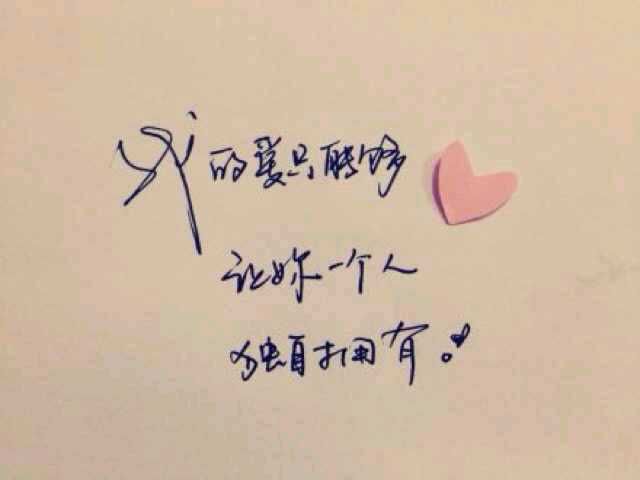 我的爱只能够
让妳一个人
独自拥有